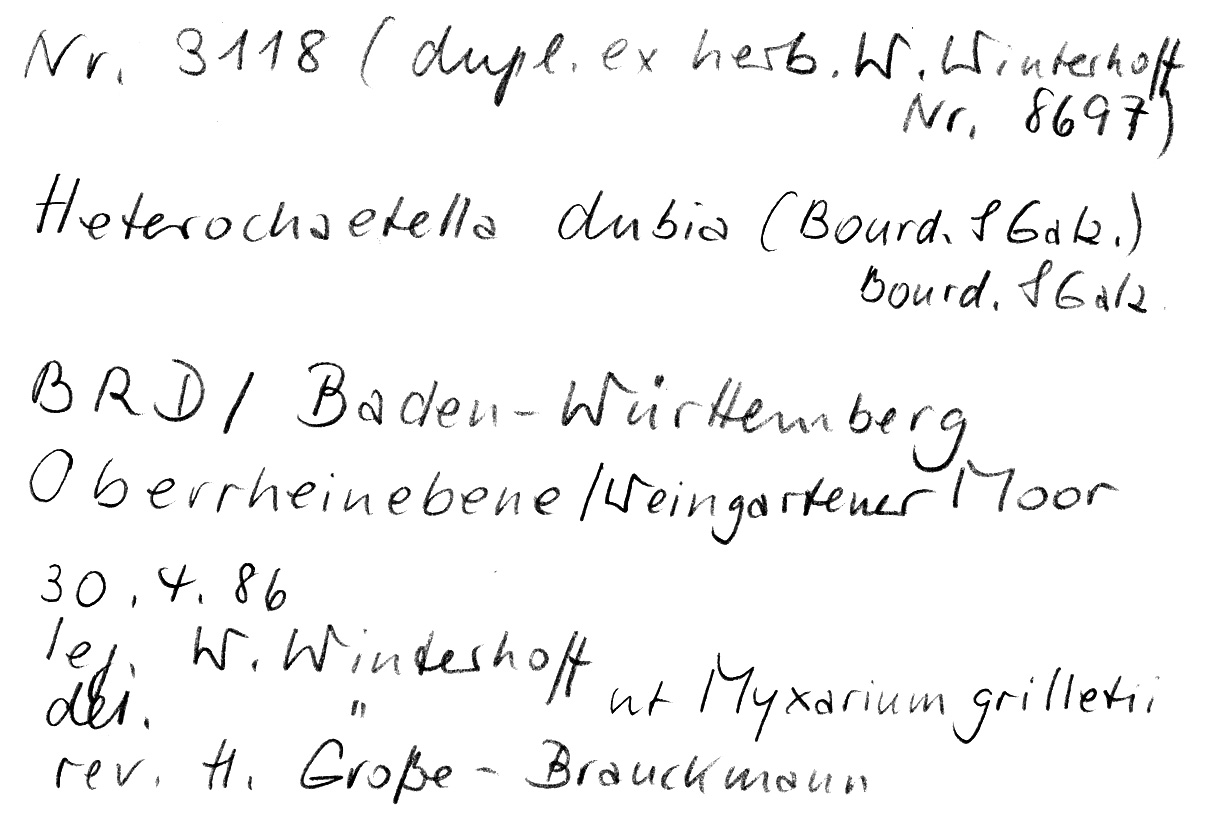 Nr. 3118 (dupl. ex herb. W. Winterhoff
Nr. 8697)
Heterochaetella dubia (Bourd. & Galz.)
Bourd. & Galz.
BRD/ Baden-Württemberg
Oberrheinebene/Weingartener Moor
30.4.86
leg. W. Winterhoff
det. " ut Myxarium grilletii
rev. H. Große-Brauckmann